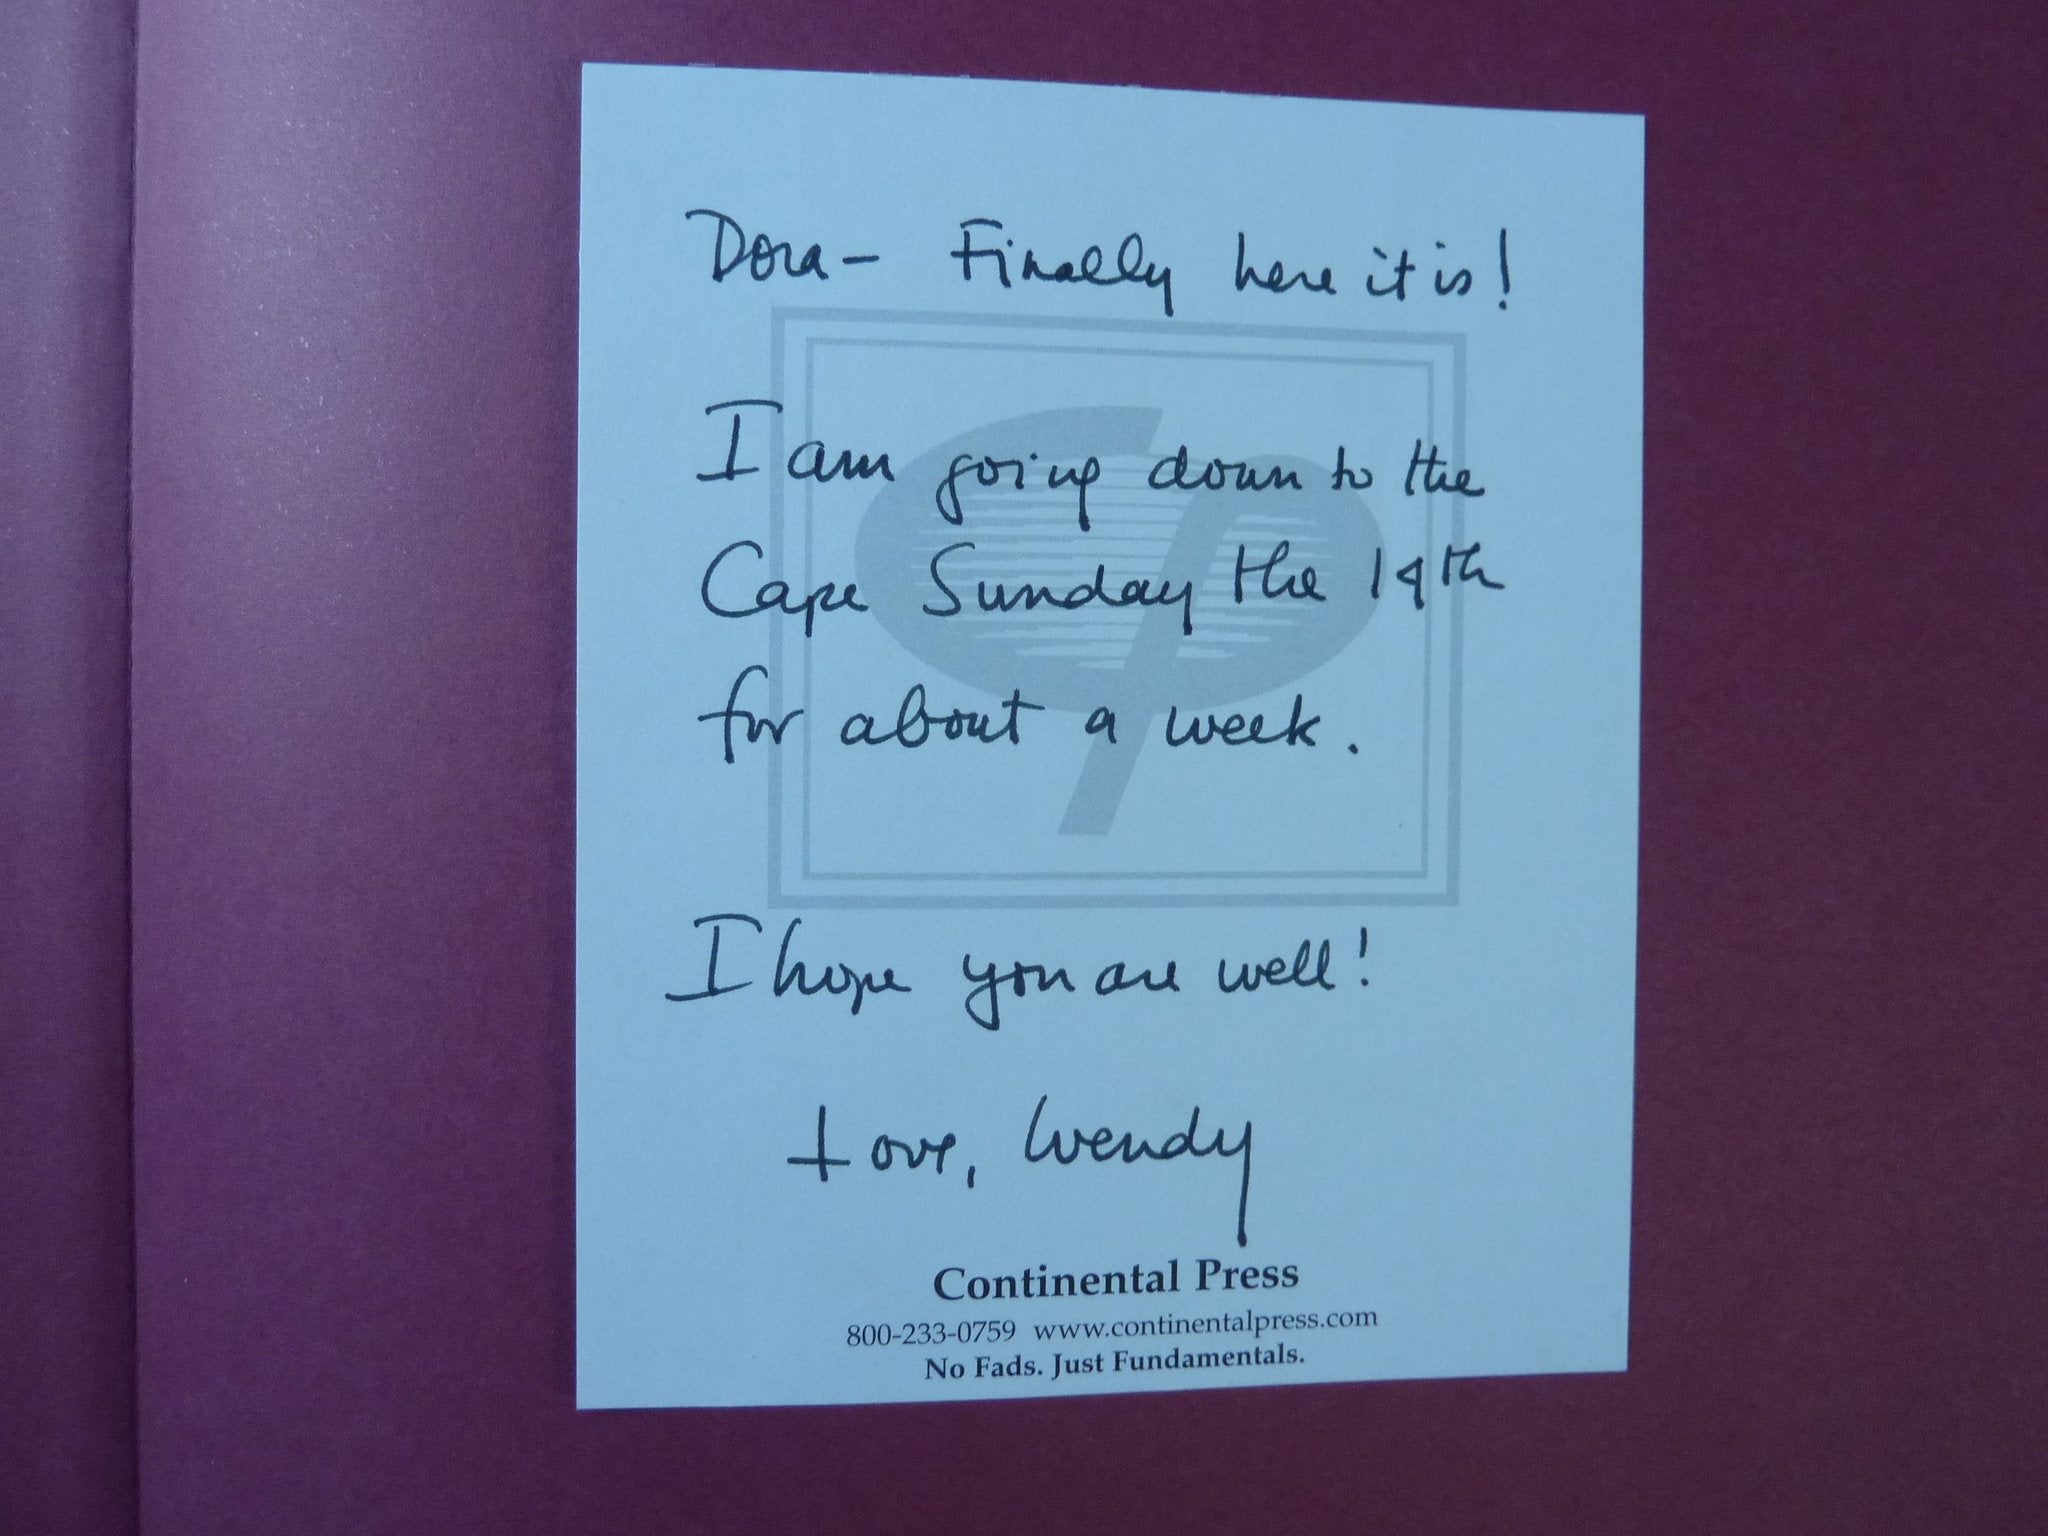 Dora – Finally here it is!
I am going down to the
Cape Sunday the 14th
for about a week.
I hope you are well!
Love, Wendy
Continental Press
800-233-0759 www.continentalpress.com
No Fads. Just Fundamentals.